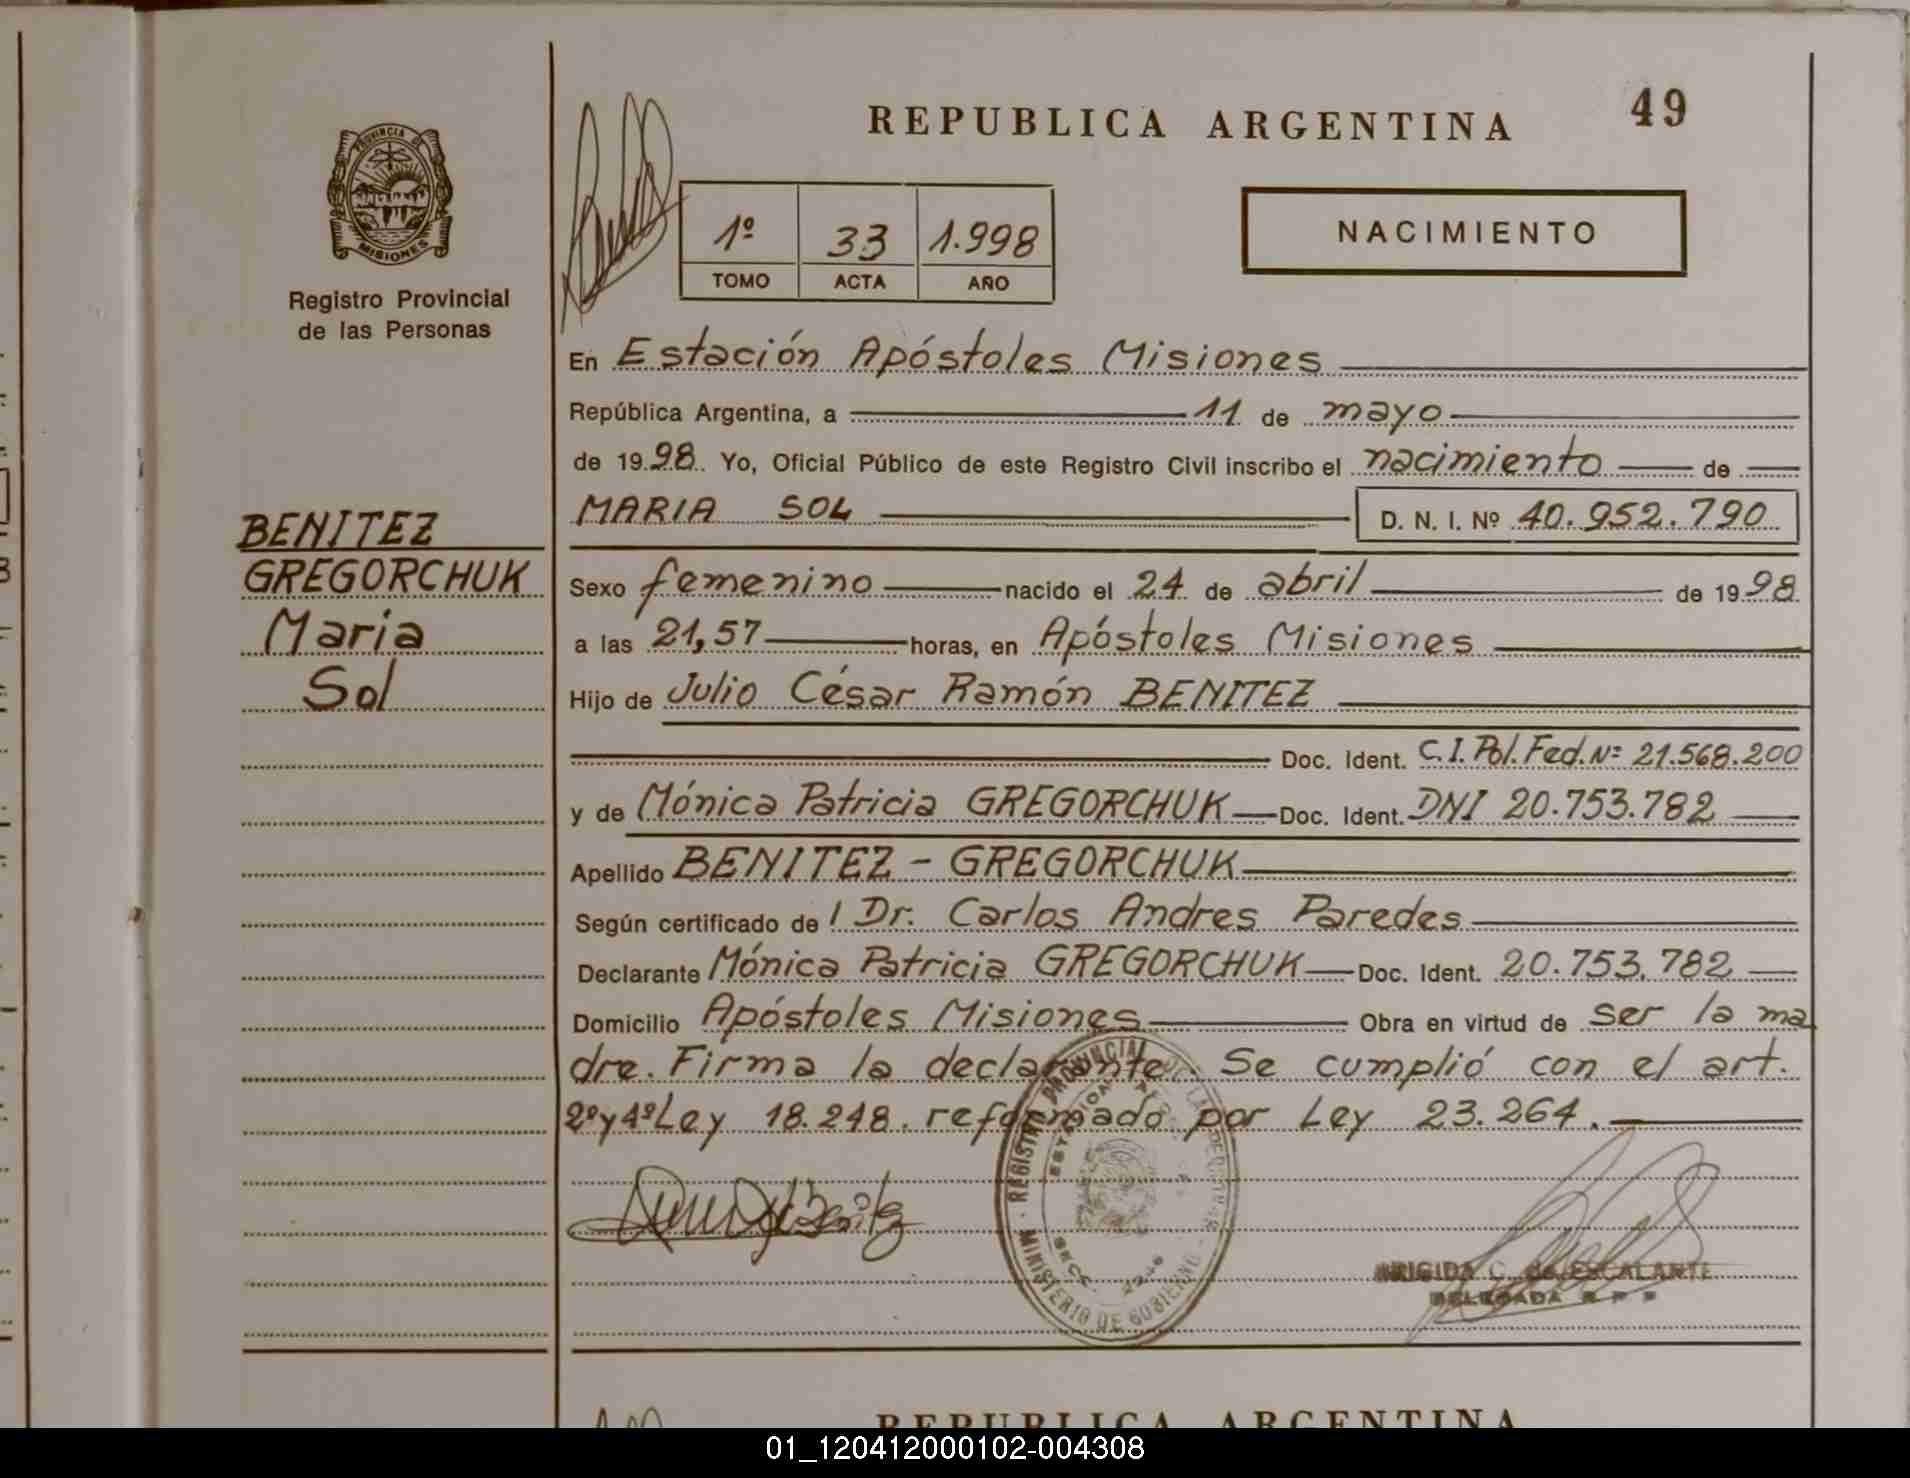 REPUBLICA ARGENTINA 49
PROVINCIA DE MISIONES
Registro Provincial
de las Personas
1º 33 1.998
TOMO ACTA AÑO
NACIMIENTO
BENITEZ
GREGORCHUK
Maria
Sol
En Estación Apóstoles Misiones
República Argentina, a 11 de mayo
de 1998 Yo, Oficial Público de este Registro Civil inscribo el nacimiento de
MARIA SOL D. N. I. Nº 40.952.790
Sexo femenino nacido el 24 de abril de 1998
a las 21,57 horas, en Apóstoles Misiones
Hijo de Julio César Ramón BENITEZ
Doc. Ident. C.I. Pol. Fed. Nº 21.568.200
y de Mónica Patricia GREGORCHUK Doc. Ident. DNI 20.753.782
Apellido BENITEZ - GREGORCHUK
Según certificado de l Dr. Carlos Andres Paredes
Declarante Mónica Patricia GREGORCHUK Doc. Ident. 20.753.782
Domicilio Apóstoles Misiones Obra en virtud de ser la ma
dre. Firma la declarante. Se cumplió con el art.
2º y 4º Ley 18.248. reformado por Ley 23.264.
REGISTRO PROVINCIAL DE LAS PERSONAS
MINISTERIO DE GOBIERNO
BRIGIDA C. de ESCALANTE
DELEGADA R P P
REPUBLICA ARGENTINA
01_120412000102-004308